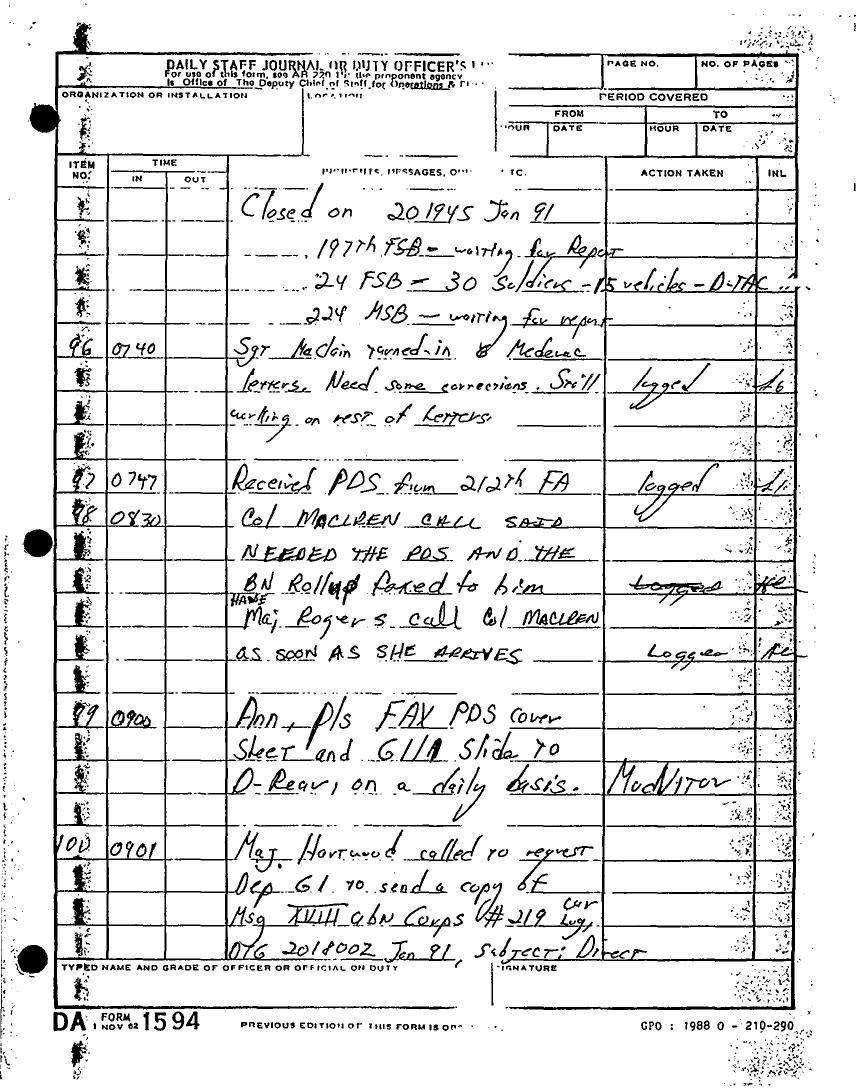 DAILY STAFF JOURNAL OR DUTY OFFICER'S
For use of this form, see AR 220-15; the proponent agency
is Office of The Deputy Chief of Staff for Operations &
PAGE NO.
NO. OF PAGES
ORGANIZATION OR INSTALLATION
LOCATION
PERIOD COVERED
FROM
TO
HOUR
DATE
HOUR
DATE
ITEM NO.
TIME
IN
OUT
INCIDENTS, MESSAGES, ETC.
ACTION TAKEN
INL
Closed on 201945 Jan 91
197th FSB - waiting for Report
24 FSB - 30 Soldiers - 15 vehicles - D-TAC
224 MSB - waiting for report
96 0740 Sgt MaClain turned-in 8 Medevac
letters. Need some corrections. Still logged
working on rest of Letters.
97 0747 Received PDS from 212th FA logged
98 0830 Col MACLREN CALL SAID
NEEDED THE PDS AND THE
BN Rollup faxed to him Logged
HAVE
Maj Rogers call Col MACLREN
AS SOON AS SHE ARRIVES Logged
99 0900 Ann, p/s FAX PDS cover
Sheet and G1/1 Slide to
D-Rear, on a daily basis.
100 0901 Maj. Hortwood called to request
Dep G1 to send a copy of
Msg XVIII abn Corps #219 Cur Log,
DTG 201800Z Jan 91, Subject: Direct
TYPED NAME AND GRADE OF OFFICER OR OFFICIAL ON DUTY
SIGNATURE
DA FORM 1 NOV 62 1594
PREVIOUS EDITION OF THIS FORM IS
GPO : 1988 O - 210-290